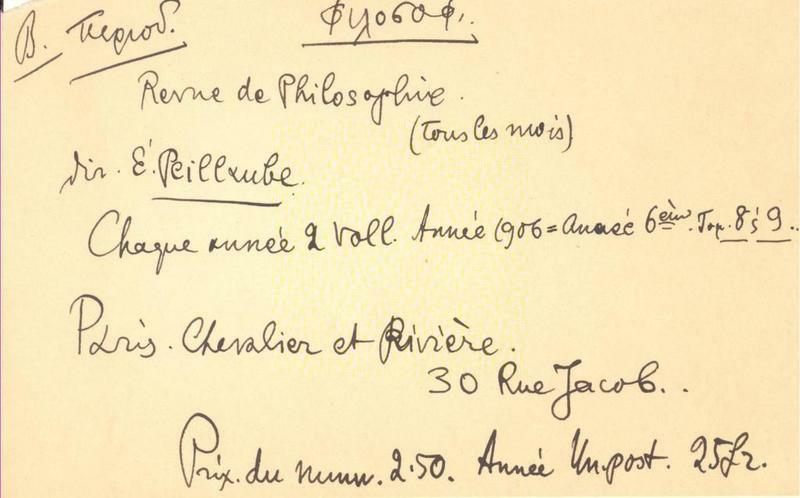 В. Период. Філософ.
Revue de Philosophie.
(tous les mois)
dir. É. Peillaube.
Chaque année 2 voll. Année 1906 = Année 6ème. Tom. 8 і 9.
Paris. Chevalier et Rivière.
30 Rue Jacob.
Prix. du num. 2.50. Année Un. post. 25 fr.